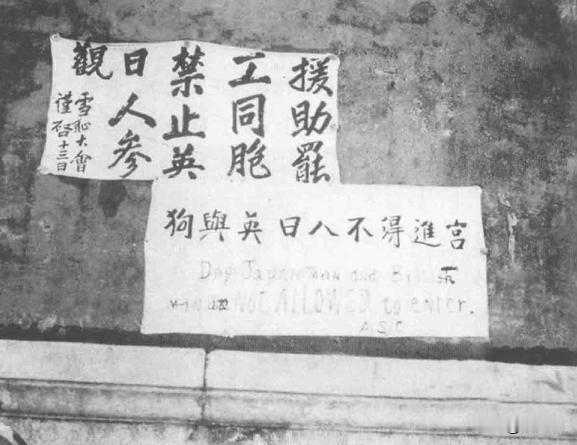 援助罷
工同胞
禁止英
日人參
觀
雪恥大會
謹啓十三日
狗與英日人不得進宮
Dog Japan man and
NOT ALLOWED to enter.